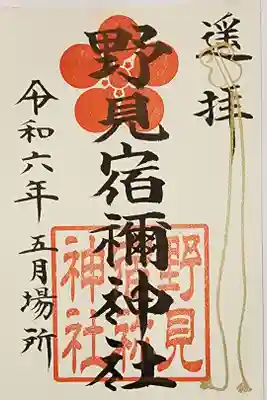 遥拝
野見宿禰神社
令和六年 五月場所
野見
宿祢
神社